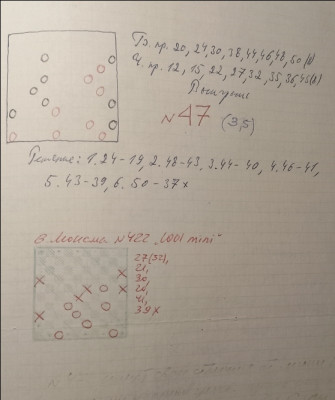 Бз. пр. 20, 24, 30, 38, 44, 46, 48, 50 (8)
Ч. пр. 12, 15, 22, 27, 32, 35, 36, 45 (8)
Выигрыш
№47 (3,5)
Решение: 1. 24-19, 2. 48-43, 3. 44-40, 4. 46-41,
5. 43-39, 6. 50-37x
№422 "1001 mini"
27(32),
21,
30,
24,
41,
39x